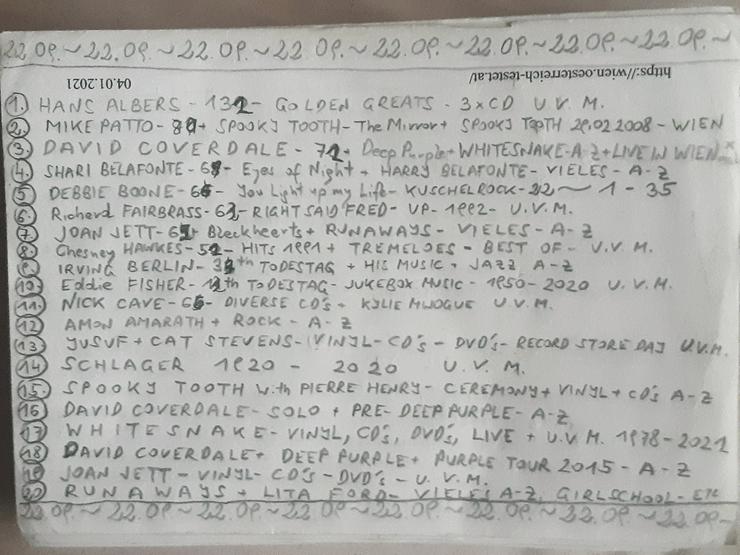 22.09.~22.09.~22.09.~22.09.~22.09.~22.09.~22.09.~22.09.~
https://wien.oesterreich-testet.at/ 04.01.2021
1. HANS ALBERS - 132 - GOLDEN GREATS - 3xCD U.V.M.
2. MIKE PATTO - + SPOOKY TOOTH - The Mirror + SPOOKY TOOTH 29.02.2008 - WIEN
3. DAVID COVERDALE - + Deep Purple + WHITESNAKE - A-Z + LIVE IN WIEN
4. SHARI BELAFONTE - Eyes of Night + HARRY BELAFONTE - VIELES - A-Z
5 DEBBIE BOONE - You Light up my Life - KUSCHELROCK - ~ 1 - 35
6. Richard FAIRBRASS - RIGHT SAID FRED - UP - 1992 - U.V.M.
7. JOAN JETT - + Blackhearts + RUNAWAYS - VIELES - A-Z
8. Chesney HAWKES - HITS 1991 + TREMELOES - BEST OF - U.V.M.
9. IRVING BERLIN - TODESTAG + HIS MUSIC + JAZZ A-Z
10. Eddie FISHER - TODESTAG - JUKEBOX MUSIC - 1950-2020 U.V.M.
11. NICK CAVE - DIVERSE CD's + KYLIE MINOGUE U.V.M.
12 AMON AMARATH + ROCK - A-Z
13 YUSUF + CAT STEVENS - VINYL - CD's - DVD's - RECORD STORE DAY U.V.M.
14 SCHLAGER 1920 - 2020 U.V.M.
15. SPOOKY TOOTH with PIERRE HENRY - CEREMONY + VINYL + CD's A-Z
16 DAVID COVERDALE - SOLO + PRE-DEEP PURPLE - A-Z
17 WHITESNAKE - VINYL, CD's, DVD's, LIVE + U.V.M. 1978-2021
18 DAVID COVERDALE + DEEP PURPLE + PURPLE TOUR 2015 - A-Z
19 JOAN JETT - VINYL - CD's - DVD's - U.V.M.
20 RUNAWAYS + LITA FORD - VIELES A-Z, GIRLSCHOOL - ETC
22.09.~22.09.~22.09.~22.09.~22.09.~22.09.~22.09.~22.09.~